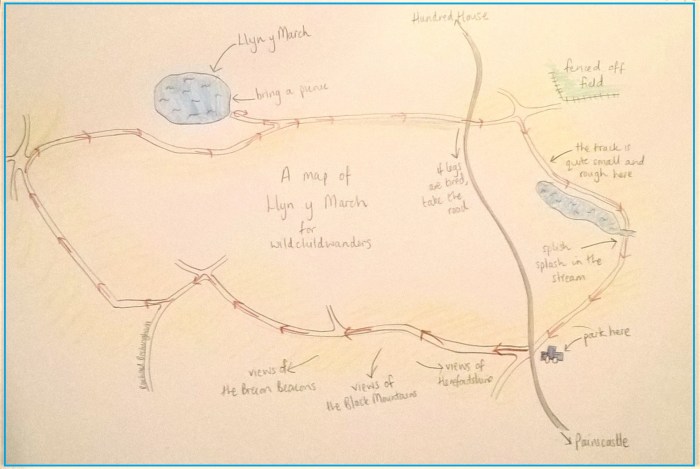 Hundred House
Llyn y March
bring a picnic
fenced off
field
the track is
quite small and
rough here
A map of
Llyn y March
for
wildchildwanders
if legs
are tired,
take the
road
splash
splash in the
stream
park here
views of
the Brecon Beacons
views of
the Black Mountains
views of
Herefordshire
Painscastle